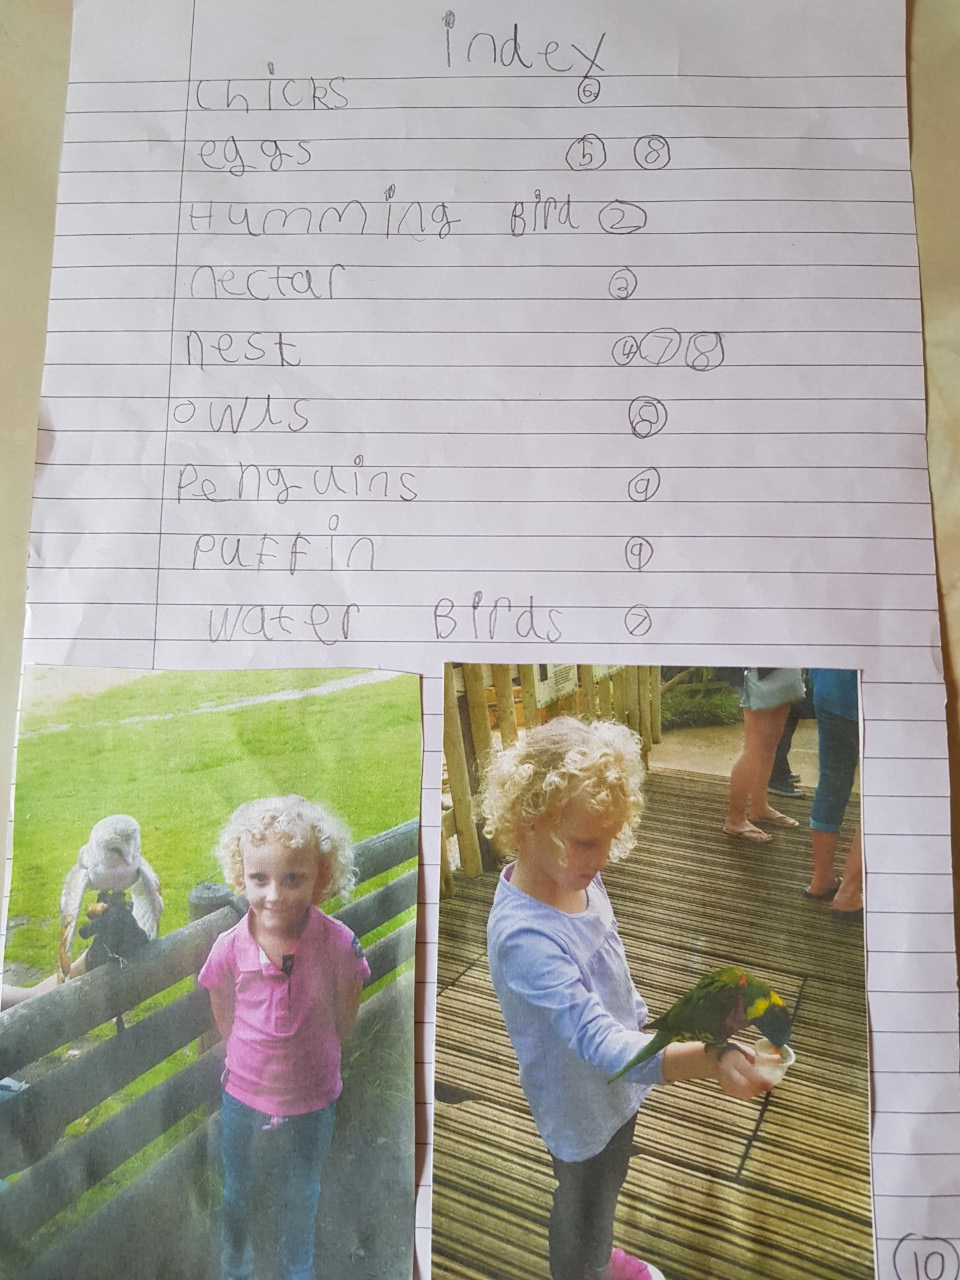 index
chicks 6
eggs 5 8
Humming Bird 2
nectar 3
nest 4 7 8
owls 8
Penguins 9
Puffin 9
water Birds 7
10